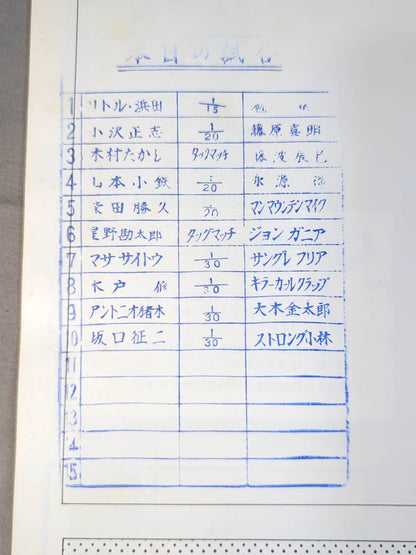 本日の試合
1 リトル・浜田 1/15
2 小沢正志 1/20 藤原喜明
3 木村たかし タッグマッチ 藤波辰巳
4 山本小鉄 1/20 永源
5 柴田勝久 /20 マンマウンテンマイク
6 星野勘太郎 タッグマッチ ジョン ガニア
7 マサ サイトウ 1/30 サングレ フリア
8 木戸 修 1/30 キラーカールクラップ
9 アントニオ猪木 1/30 大木金太郎
10 坂口征二 1/30 ストロング小林
11
12
13
14
15